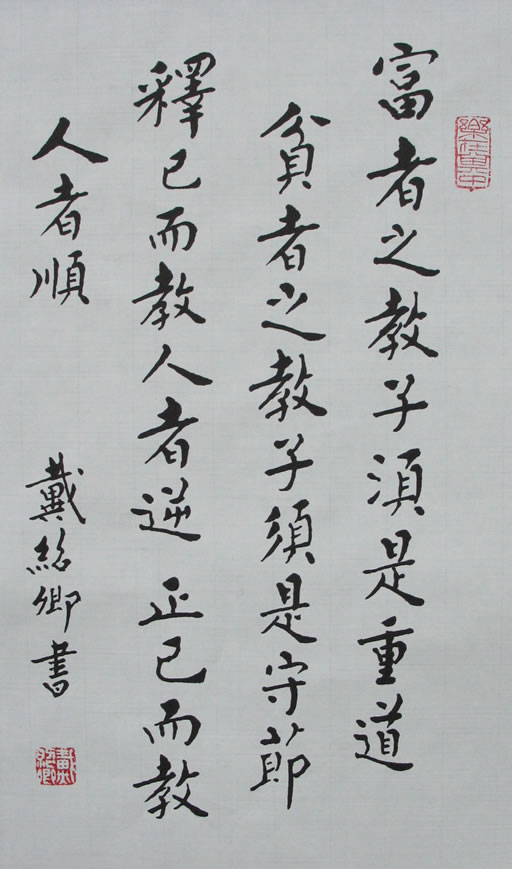 樂在其中
富者之教子湏是重道
貧者之教子須是守節
釋己而教人者逆 正己而教
人者順
戴紹卿書
戴紹卿